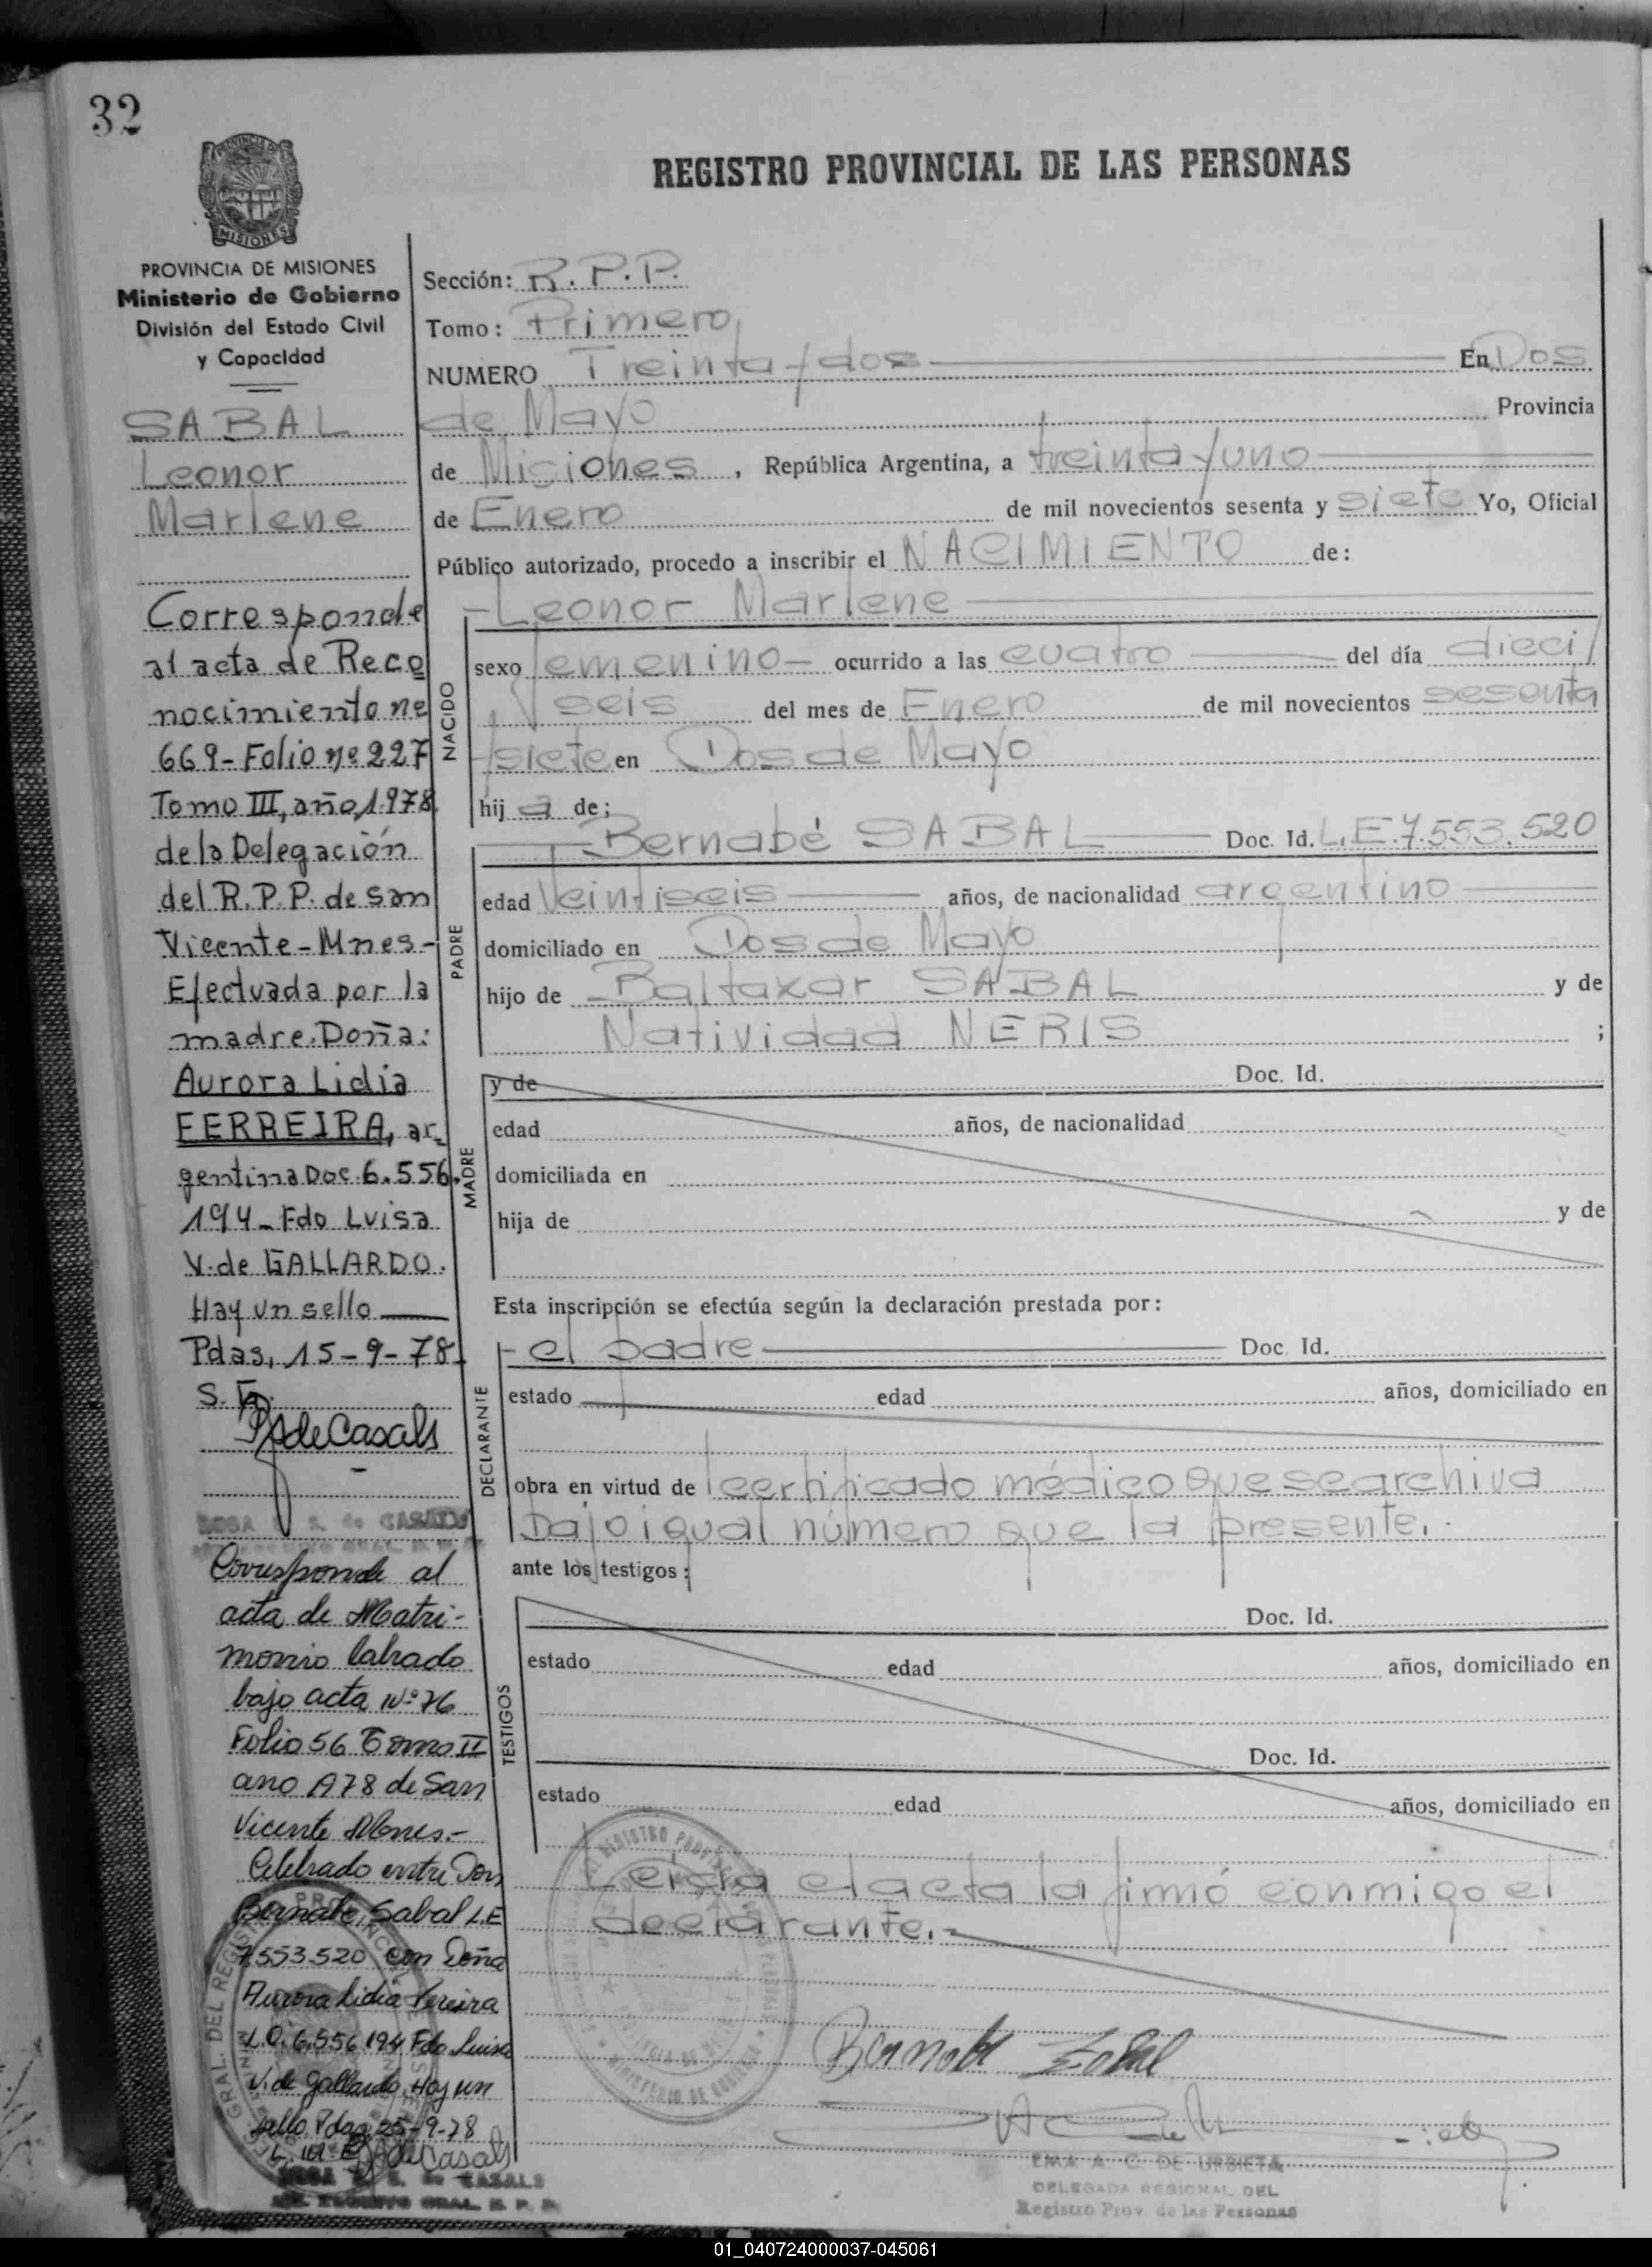 32
REGISTRO PROVINCIAL DE LAS PERSONAS
MISIONES
PROVINCIA DE MISIONES
Ministerio de Gobierno
División del Estado Civil
y Capacidad
SABAL
Leonor
Marlene
Corresponde
al acta de Reco
nocimiento nº
669-Folio nº 227
Tomo III, año, 1.978
de la Delegación
del R.P.P. de San
Vicente-Mnes-
Efectuada por la
madre. Doña:
Aurora Lidia
FERREIRA, ar_
gentina Doc. 6.556.
194_Fdo Luisa
V. de GALLARDO.
Hay un sello
Pdas, 15-9-78.
PSdeCasals
ROSA S. de CASALS
Corresponde al
acta de Matri-
monio labrado
bajo acta Nº 76
Folio 56 Tomo II
ano 1978 de San
Vicente Mnes.-
Celebrado entre Don
Bernabe Sabal L.E
7553520 con Doña
Aurora Lidia Fereira
L.C. 6.556194 Fdo Luisa
V. de Gallardo. Hay un
sello. Pdas, 25-9-78
deCasals
ROSA S. de CASALS
Sección: R.P.P.
Tomo: Primero
NUMERO Treinta y dos En Dos
de Mayo Provincia
de Misiones, República Argentina, a treinta y uno
de Enero de mil novecientos sesenta y siete Yo, Oficial
Público autorizado, procedo a inscribir el NACIMIENTO de:
Leonor Marlene
NACIDO
sexo femenino ocurrido a las cuatro del día dieci/
seis del mes de Enero de mil novecientos sesenta
y siete en Dos de Mayo
hij a de;
PADRE
Bernabé SABAL Doc. Id. L.E.7.553.520
edad Veintiseis años, de nacionalidad argentino
domiciliado en Dos de Mayo
hijo de Baltaxar SABAL y de
Natividad NERIS ;
MADRE
y de Doc. Id.
edad años, de nacionalidad
domiciliada en
hija de y de
Esta inscripción se efectúa según la declaración prestada por:
DECLARANTE
el padre Doc. Id.
estado edad años, domiciliado en
obra en virtud de certificado médico que se archiva
bajo igual número que la presente.-
ante los testigos:
TESTIGOS
Doc. Id.
estado edad años, domiciliado en
Doc. Id.
estado edad años, domiciliado en
Leida el acta la firmó conmigo el
declarante.-
Bernabe Zabal
EMA A. C. DE URBIETA
DELEGADA REGIONAL DEL
Registro Prov. de las Personas
01_040724000037-045061